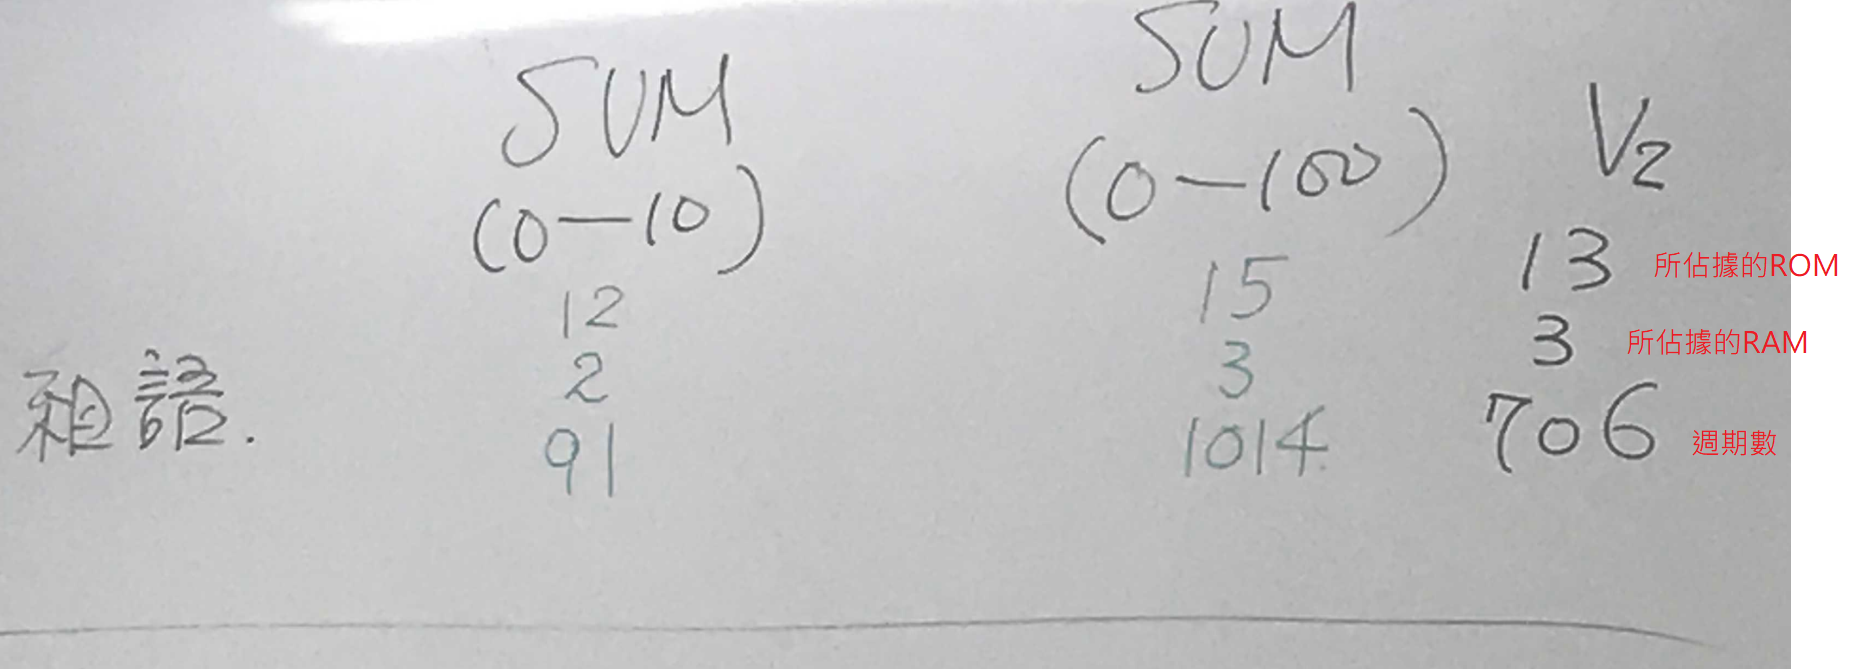 SUM SUM
(0-10) (0-100) V2
12 15 13 所佔據的ROM
2 3 3 所佔據的RAM
組語. 91 1014 706 週期數